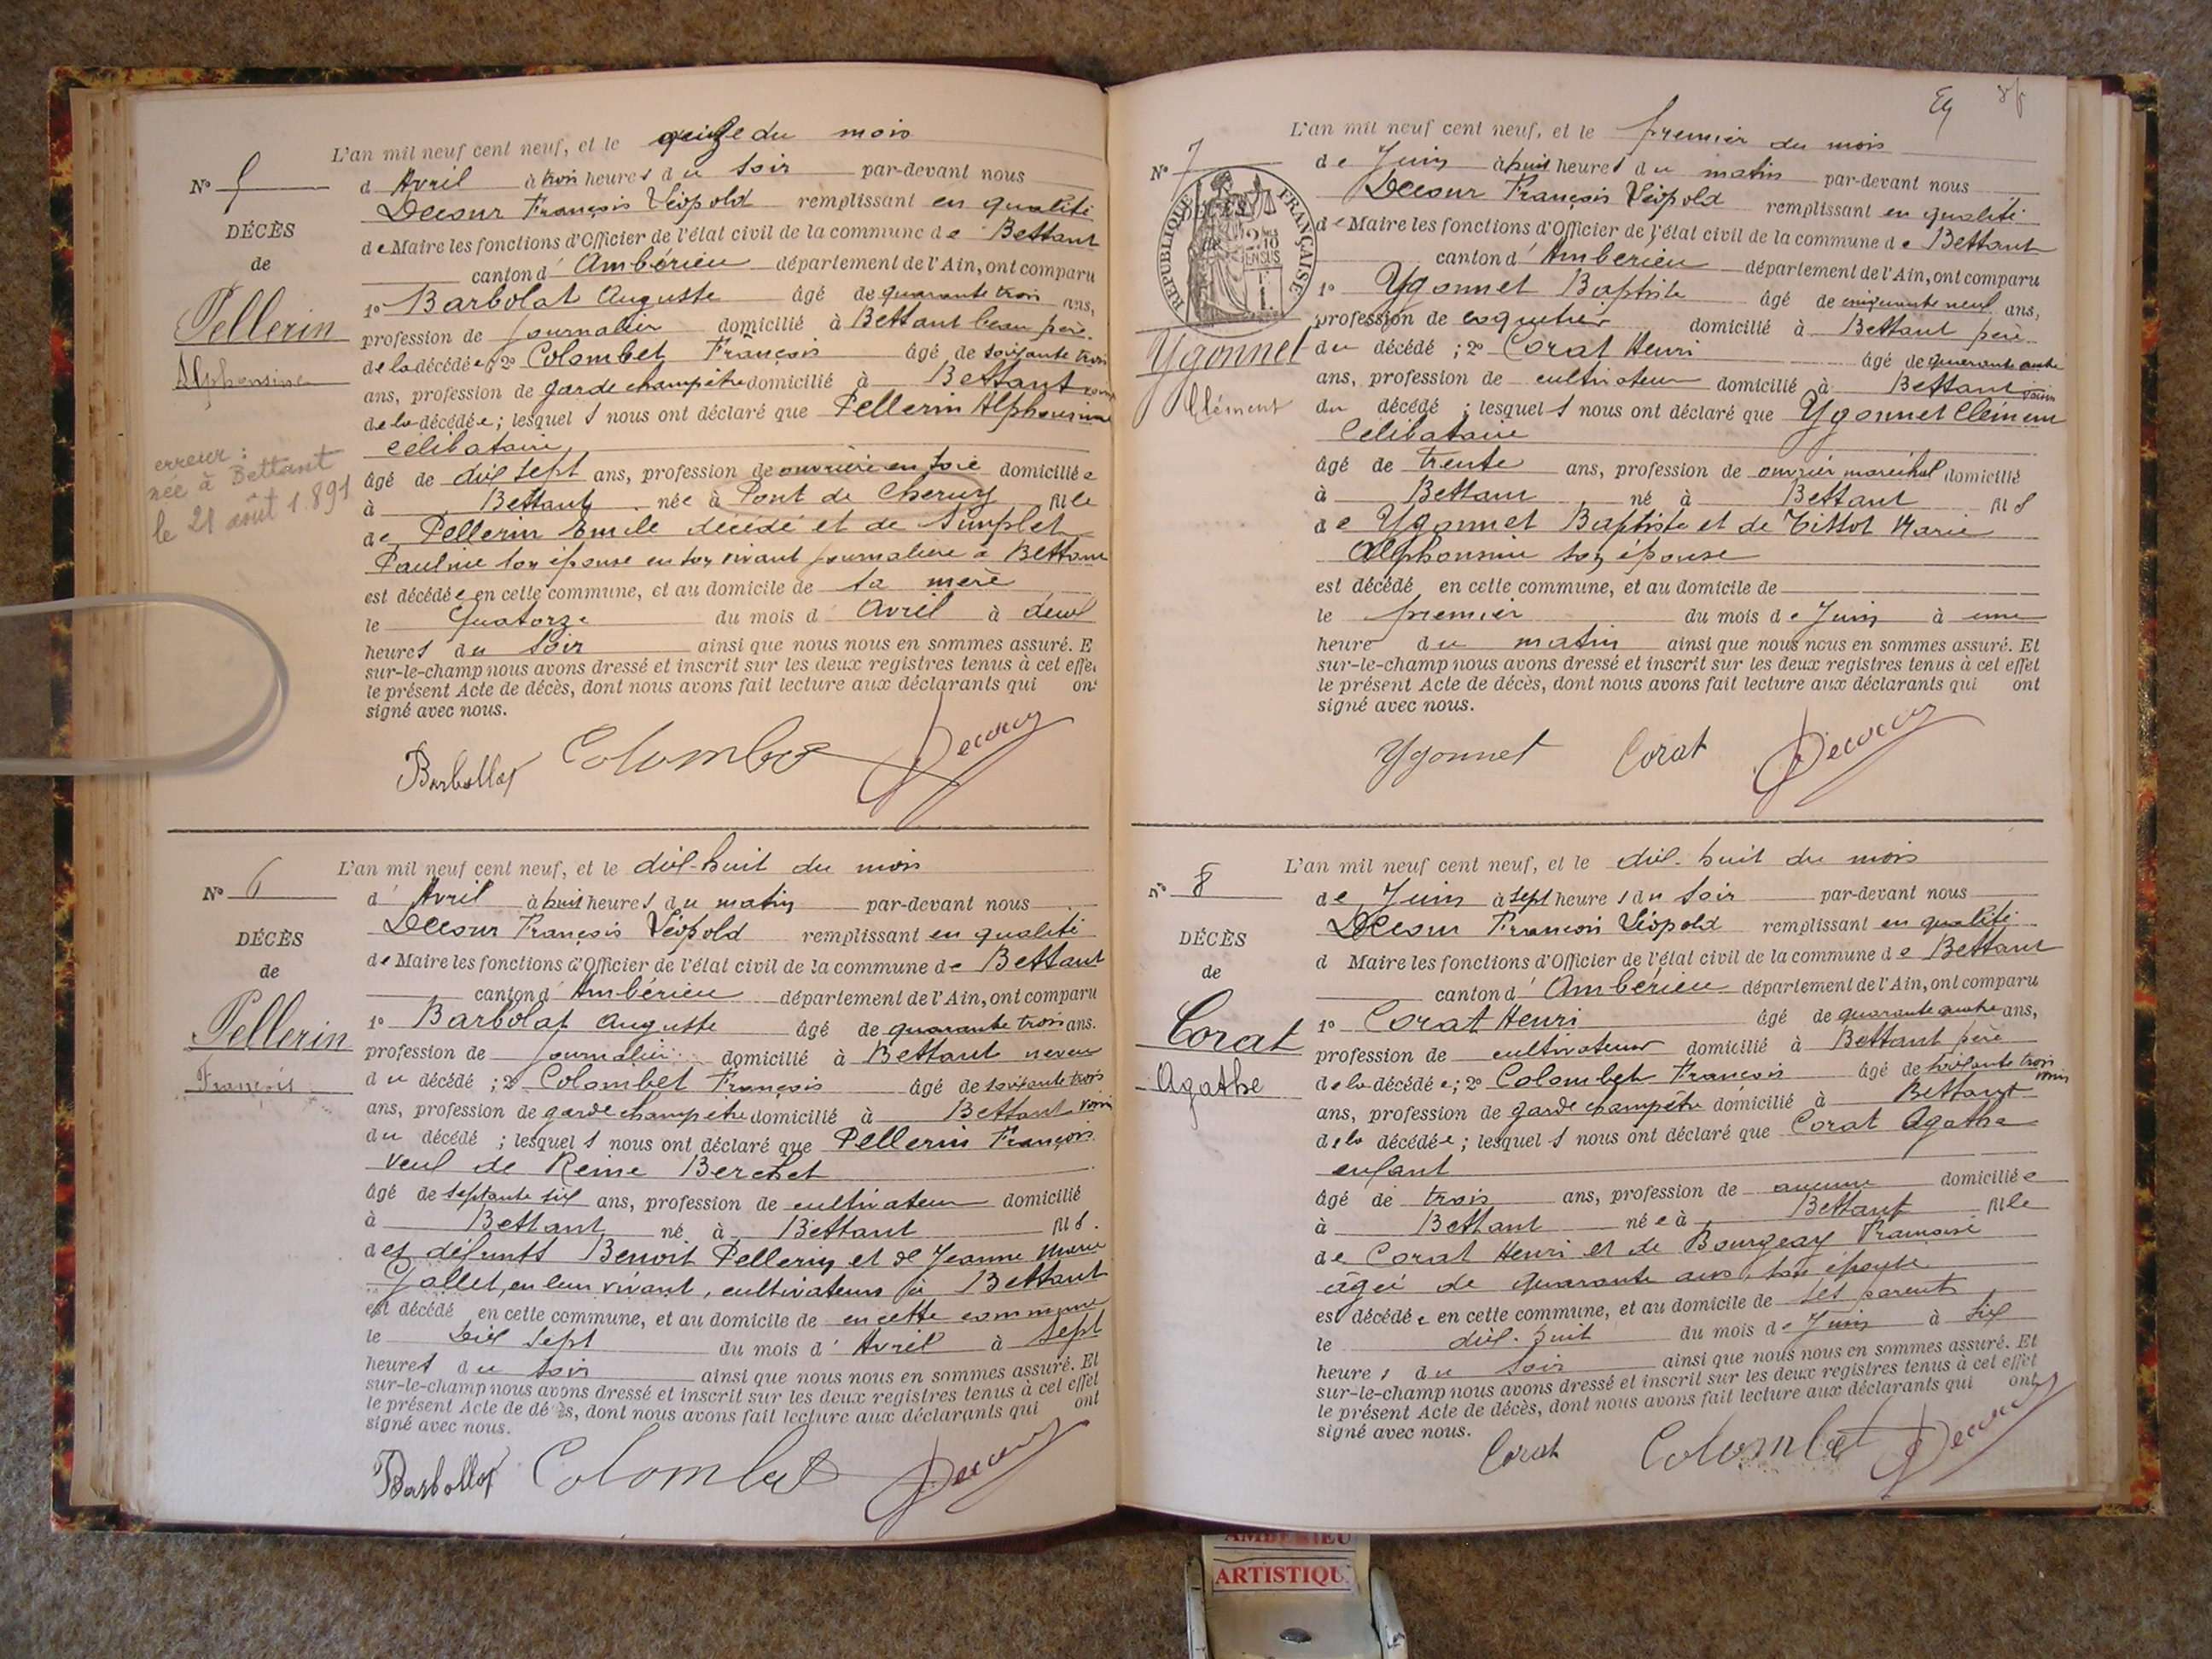 L'an mil neuf cent neuf, et le quinze du mois
N° 5
d Avril à trois heures du soir par-devant nous
Decour François Léopold remplissant en qualité
DÉCÈS
de Maire les fonctions d'Officier de l'état civil de la commune de Bettant
de
canton d'Ambérieu département de l'Ain, ont comparu
Pellerin
1° Barbolat Auguste âgé de quarante trois ans,
profession de journalier domicilié à Bettant beau père
Alphonsine
de la décédée; 2° Colombet François âgé de soixante trois
ans, profession de garde champêtre domicilié à Bettant voisin
de la décédée; lesquels nous ont déclaré que Pellerin Alphonsine
célibataire
erreur :
née à Bettant
le 21 août 1891
âgé de dix sept ans, profession de ouvrière en soie domiciliée
à Bettant née à Pont de Cheruy fille
de Pellerin Emile décédé et de Simplet
Pauline son épouse en son vivant journalière à Bettant
est décédée en cette commune, et au domicile de sa mère
le Quatorze du mois d Avril à deux
heures du soir ainsi que nous nous en sommes assuré. E
sur-le-champ nous avons dressé et inscrit sur les deux registres tenus à cet effe
le présent Acte de décès, dont nous avons fait lecture aux déclarants qui ont
signé avec nous.
Barbollat Colombet Decour
L'an mil neuf cent neuf, et le dix-huit du mois
N° 6
d'Avril à huit heures du matin par-devant nous
Decour François Léopold remplissant en qualité
DÉCÈS
de Maire les fonctions d'Officier de l'état civil de la commune de Bettant
de
canton d'Ambérieu département de l'Ain, ont comparu
Pellerin
1° Barbolat Auguste âgé de quarante trois ans.
profession de journalier domicilié à Bettant neveu
François
du décédé ; 2° Colombet François âgé de soixante trois
ans, profession de garde champêtre domicilié à Bettant voisin
du décédé ; lesquels nous ont déclaré que Pellerin François
veuf de Reine Berchet
âgé de septante six ans, profession de cultivateur domicilié
à Bettant né à Bettant fils.
des défunts Benoit Pellerin et de Jeanne Marie
Gallet, en leur vivant, cultivateurs à Bettant
est décédé en cette commune, et au domicile de en cette commune
le Dix sept du mois d'Avril à sept
heures du soir ainsi que nous nous en sommes assuré. Et
sur-le-champ nous avons dressé et inscrit sur les deux registres tenus à cet effet
le présent Acte de décès, dont nous avons fait lecture aux déclarants qui ont
signé avec nous.
Barbollat Colombet Decour
L'an mil neuf cent neuf, et le premier du mois
N° 7
de Juin à huit heures du matin par-devant nous
Decour François Léopold remplissant en qualité
DÉCÈS
RÉPUBLIQUE FRANÇAISE
2/10 EN SUS
de Maire les fonctions d'Officier de l'état civil de la commune de Bettant
canton d'Ambérieu département de l'Ain, ont comparu
1° Ygonnet Baptiste âgé de cinquante neuf ans,
profession de coquetier domicilié à Bettant père
Ygonnet
du décédé ; 2° Corat Henri âgé de quarante quatre
ans, profession de cultivateur domicilié à Bettant voisin
Clément
du décédé ; lesquels nous ont déclaré que Ygonnet Clément
Célibataire
âgé de trente ans, profession de ouvrier maréchal domicilié
à Bettant né à Bettant fils
de Ygonnet Baptiste et de Tissot Marie
Alphonsine son épouse
est décédé en cette commune, et au domicile de
le premier du mois de Juin à une
heure du matin ainsi que nous nous en sommes assuré. Et
sur-le-champ nous avons dressé et inscrit sur les deux registres tenus à cet effet
le présent Acte de décès, dont nous avons fait lecture aux déclarants qui ont
signé avec nous.
Ygonnet Corat Decour
L'an mil neuf cent neuf, et le dix-huit du mois
N° 8
de Juin à sept heures du soir par-devant nous
Decour François Léopold remplissant en qualité
DÉCÈS
d Maire les fonctions d'Officier de l'état civil de la commune de Bettant
de
canton d'Ambérieu département de l'Ain, ont comparu
Corat
1° Corat Henri âgé de quarante quatre ans,
profession de cultivateur domicilié à Bettant père
Agathe
de la décédée; 2° Colombet François âgé de soixante trois
ans, profession de garde champêtre domicilié à Bettant voisin
de la décédée; lesquels nous ont déclaré que Corat Agathe
enfant
âgé de trois ans, profession de aucune domiciliée
à Bettant née à Bettant fille
de Corat Henri et de Bourgeay Françoise
âgée de quarante ans, son épouse
est décédée en cette commune, et au domicile de ses parents
le dix-huit du mois de Juin à six
heures du soir ainsi que nous nous en sommes assuré. Et
sur-le-champ nous avons dressé et inscrit sur les deux registres tenus à cet effet
le présent Acte de décès, dont nous avons fait lecture aux déclarants qui ont
signé avec nous.
Corat Colombet Decour
AMBERIEU
ARTISTIQU